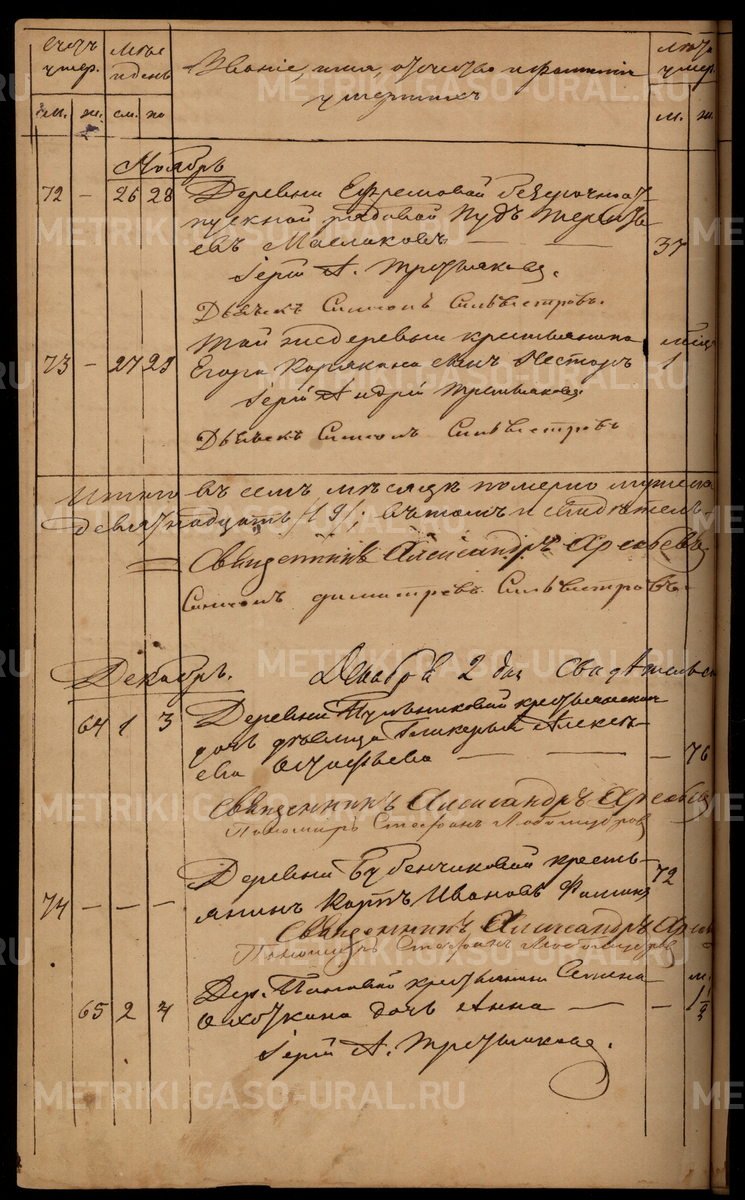 Счетъ умер. Мѣс. и день Званіе, имя, отчество и фамилія умершихъ Лѣта умер.
м. ж. см. по м. ж.
Ноябрь
72 — 26 28 Деревни Ефремовой безсрочноот-
пускной рядовой Иудъ Терентьъ-
евъ Маслаковъ — — 37
Іерей А. Третьяковъ.
Дьячекъ Симеонъ Сильвестровъ.
73 — 27 29 Той же деревни крестьянина
Егора Корякина сынъ Несторъ 1
Іерей Андрей Третьяковъ
Дьячекъ Симеонъ Сильвестровъ
Итого въ семъ мѣсяцѣ померло мужеска
девятнадцать /19/;
Священникъ Александръ Арефьевъ
Симеонъ Димитріевъ Сильвестровъ.
Декабрь. Декабря 2 дня
64 1 3 Деревни крестьянская
дочь дѣвица Гликерья Алексѣ-
ева — — — 76
Священникъ Александръ Арефьевъ
Пономарь Стефанъ Любомудровъ
74 — — — Деревни Бубенчиковой кресть-
янинъ Карпъ Ивановъ Фоминъ 72
Священникъ Александръ Ареф
Пономарь Стефанъ Любомудровъ
65 2 4 Дер. крестьянина Семена
Охоткина дочь Анна — — м. 1½
Іерей А. Третьяковъ.
METRIKI.GASO-URAL.RU